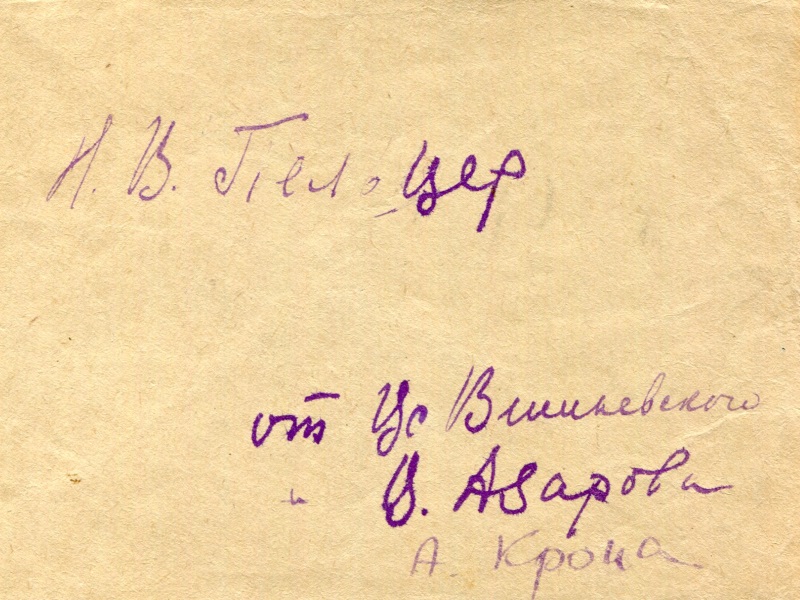 Н. В. Пельцер
от Вс Вишневского
В. Азарова
А. Крона